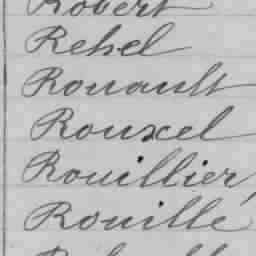 Robert
Rehel
Rouault
Rouxel
Rouillier,
Rouillé